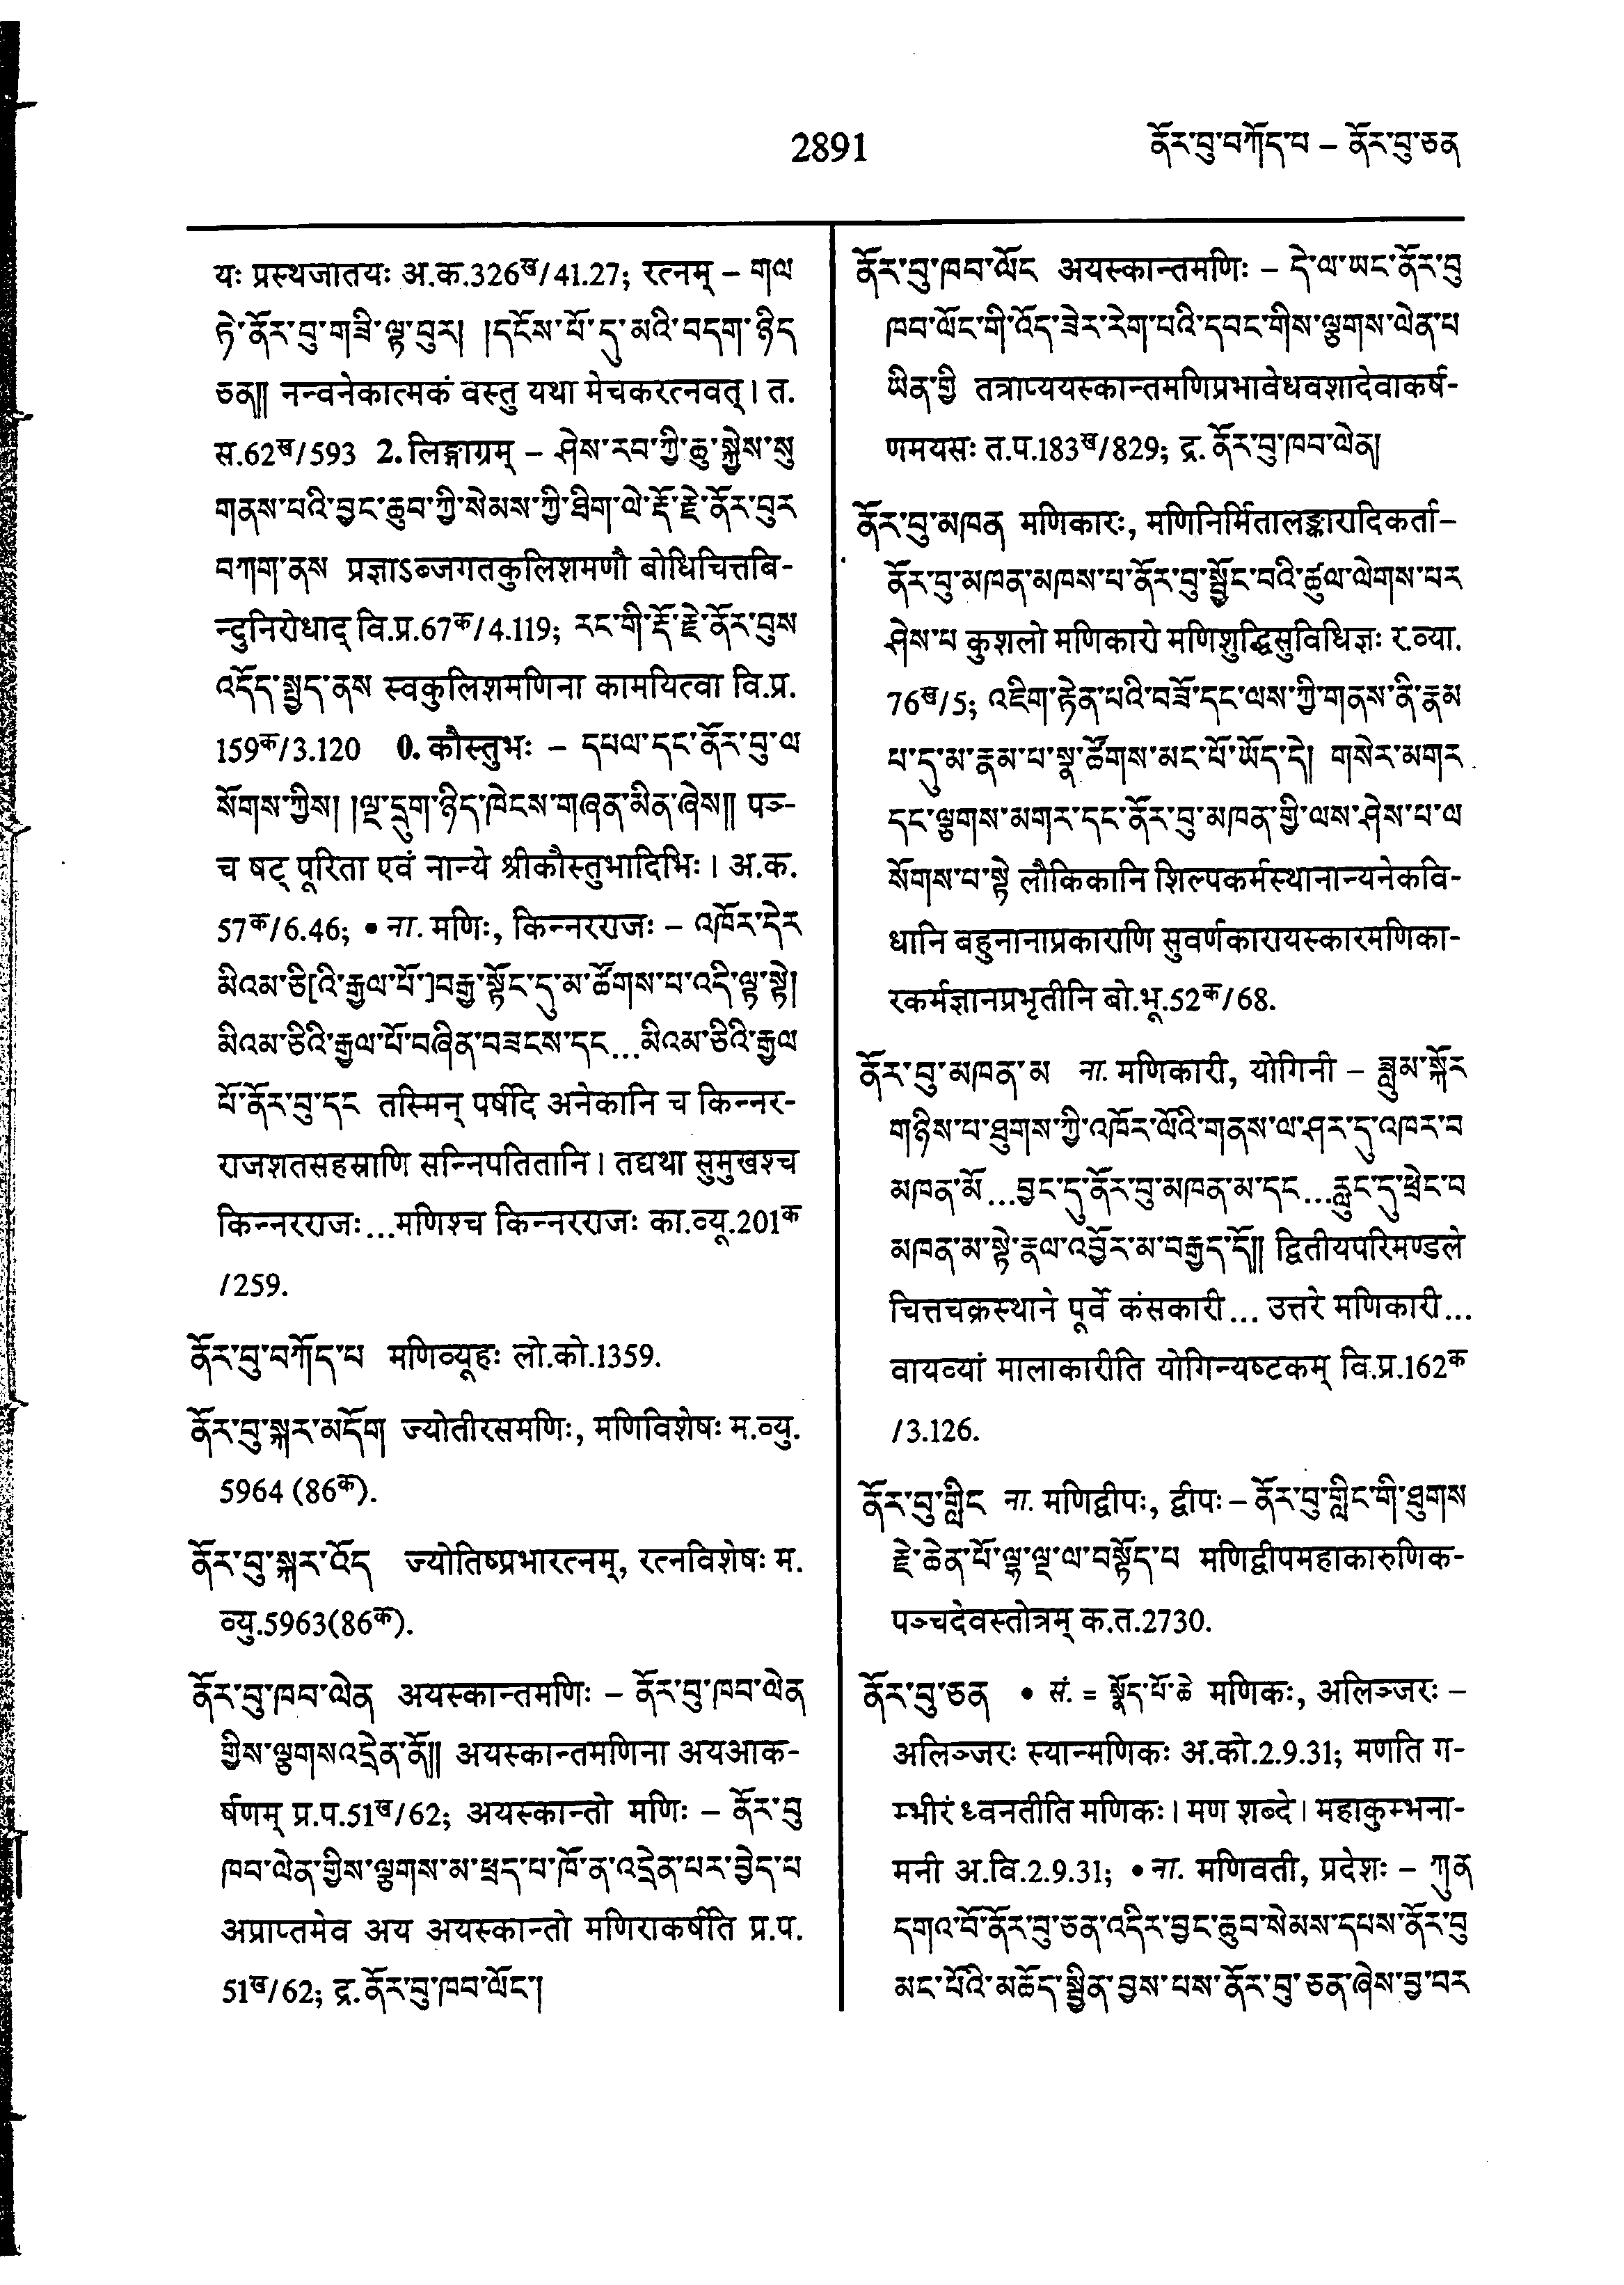 2891
ནོར་བུ་བཀོད་པ – ནོར་བུ་ཅན
यः प्रस्थजातयः अ.क.326ख/41.27; रत्नम् – གལ
ཏེ་ནོར་བུ་གཟི་ལྟ་བུར། །དངོས་པོ་དུ་མའི་བདག་ཉིད
ཅན།། नन्वनेकात्मकं वस्तु यथा मेचकरत्नवत्। त.
स.62ख/593 2. लिङ्गाग्रम् – ཤེས་རབ་ཀྱི་ཆུ་སྐྱེས་སུ
གནས་པའི་བྱང་ཆུབ་ཀྱི་སེམས་ཀྱི་ཐིག་ལེ་རྡོ་རྗེ་ནོར་བུར
བཀག་ནས प्रज्ञाऽब्जगतकुलिशमणौ बोधिचित्तबि-
न्दुनिरोधाद् वि.प्र.67क/4.119; རང་གི་རྡོ་རྗེ་ནོར་བུས
འདོད་སྤྱད་ནས स्वकुलिशमणिना कामयित्वा वि.प्र.
159क/3.120 0. कौस्तुभः – དཔལ་དང་ནོར་བུ་ལ
སོགས་ཀྱིས། །ལྔ་དྲུག་ཉིད་ཁེངས་གཞན་མིན་ཞེས།། पञ्-
च षट् पूरिता एवं नान्ये श्रीकौस्तुभादिभिः। अ.क.
57क/6.46; • ना. मणिः, किन्नरराजः – འཁོར་དེར
མིའམ་ཅི[འི་རྒྱལ་པོ་]བརྒྱ་སྟོང་དུ་མ་ཚོགས་པ་འདི་ལྟ་སྟེ།
མིའམ་ཅིའི་རྒྱལ་པོ་བཞིན་བཟངས་དང...མིའམ་ཅིའི་རྒྱལ
པོ་ནོར་བུ་དང तस्मिन् पर्षदि अनेकानि च किन्नर-
राजशतसहस्राणि सन्निपतितानि। तद्यथा सुमुखश्च
किन्नरराजः...मणिश्च किन्नरराजः का.व्यू.201क
/259.
ནོར་བུ་བཀོད་པ मणिव्यूहः लो.को.1359.
ནོར་བུ་སྐར་མདོག ज्योतीरसमणिः, मणिविशेषः म.व्यु.
5964 (86क).
ནོར་བུ་སྐར་འོད ज्योतिष्प्रभारत्नम्, रत्नविशेषः म.
व्यु.5963(86क).
ནོར་བུ་ཁབ་ལེན अयस्कान्तमणिः – ནོར་བུ་ཁབ་ལེན
གྱིས་ལྕགས་འདྲེན་ནོ།། अयस्कान्तमणिना अयआक-
र्षणम् प्र.प.51ख/62; अयस्कान्तो मणिः – ནོར་བུ
ཁབ་ལེན་གྱིས་ལྕགས་མ་ཕྲད་པ་ཁོ་ན་འདྲེན་པར་བྱེད་པ
अप्राप्तमेव अय अयस्कान्तो मणिराकर्षति प्र.प.
51ख/62; द्र. ནོར་བུ་ཁབ་ལོང་།
ནོར་བུ་ཁབ་ལོང अयस्कान्तमणिः – དེ་ལ་ཡང་ནོར་བུ
ཁབ་ལོང་གི་འོད་ཟེར་རེག་པའི་དབང་གིས་ལྕགས་ལེན་པ
ཡིན་གྱི तत्राप्ययस्कान्तमणिप्रभावेधवशादेवाकर्ष-
णमयसः त.प.183ख/829; द्र. ནོར་བུ་ཁབ་ལེན།
ནོར་བུ་མཁན मणिकारः, मणिनिर्मितालङ्कारादिकर्ता–
ནོར་བུ་མཁན་མཁས་པ་ནོར་བུ་སྦྱོང་བའི་ཚུལ་ལེགས་པར
ཤེས་པ कुशलो मणिकारो मणिशुद्धिसुविधिज्ञः र.व्या.
76ख/5; འཇིག་རྟེན་པའི་བཟོ་དང་ལས་ཀྱི་གནས་ནི་རྣམ
པ་དུ་མ་རྣམ་པ་སྣ་ཚོགས་མང་པོ་ཡོད་དེ། གསེར་མགར
དང་ལྕགས་མགར་དང་ནོར་བུ་མཁན་གྱི་ལས་ཤེས་པ་ལ
སོགས་པ་སྟེ लौकिकानि शिल्पकर्मस्थानान्यनेकवि-
धानि बहुनानाप्रकाराणि सुवर्णकारायस्कारमणिका-
रकर्मज्ञानप्रभृतीनि बो.भू.52क/68.
ནོར་བུ་མཁན་མ ना. मणिकारी, योगिनी – ཟླུམ་སྐོར
གཉིས་པ་ཐུགས་ཀྱི་འཁོར་ལོའི་གནས་ལ་ཤར་དུ་འཁར་བ
མཁན་མོ...བྱང་དུ་ནོར་བུ་མཁན་མ་དང...རླུང་དུ་ཕྲེང་བ
མཁན་མ་སྟེ་རྣལ་འབྱོར་མ་བརྒྱད་དོ།། द्वितीयपरिमण्डले
चित्तचक्रस्थाने पूर्वे कंसकारी... उत्तरे मणिकारी...
वायव्यां मालाकारीति योगिन्यष्टकम् वि.प्र.162क
/3.126.
ནོར་བུ་གླིང ना. मणिद्वीपः, द्वीपः – ནོར་བུ་གླིང་གི་ཐུགས
རྗེ་ཆེན་པོ་ལྷ་ལྔ་ལ་བསྟོད་པ मणिद्वीपमहाकारुणिक-
पञ्चदेवस्तोत्रम् क.त.2730.
ནོར་བུ་ཅན • सं. = སྣོད་པོ་ཆེ मणिकः, अलिञ्जरः –
अलिञ्जरः स्यान्मणिकः अ.को.2.9.31; मणति ग-
म्भीरं ध्वनतीति मणिकः। मण शब्दे। महाकुम्भना-
मनी अ.वि.2.9.31; • ना. मणिवती, प्रदेशः – ཀུན
དགའ་བོ་ནོར་བུ་ཅན་འདིར་བྱང་ཆུབ་སེམས་དཔས་ནོར་བུ
མང་པོའི་མཆོད་སྦྱིན་བྱས་པས་ནོར་བུ་ཅན་ཞེས་བྱ་བར